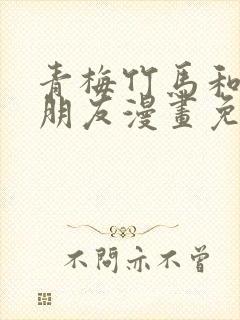 青梅竹馬和
朋友漫畫免
不問亦不曾